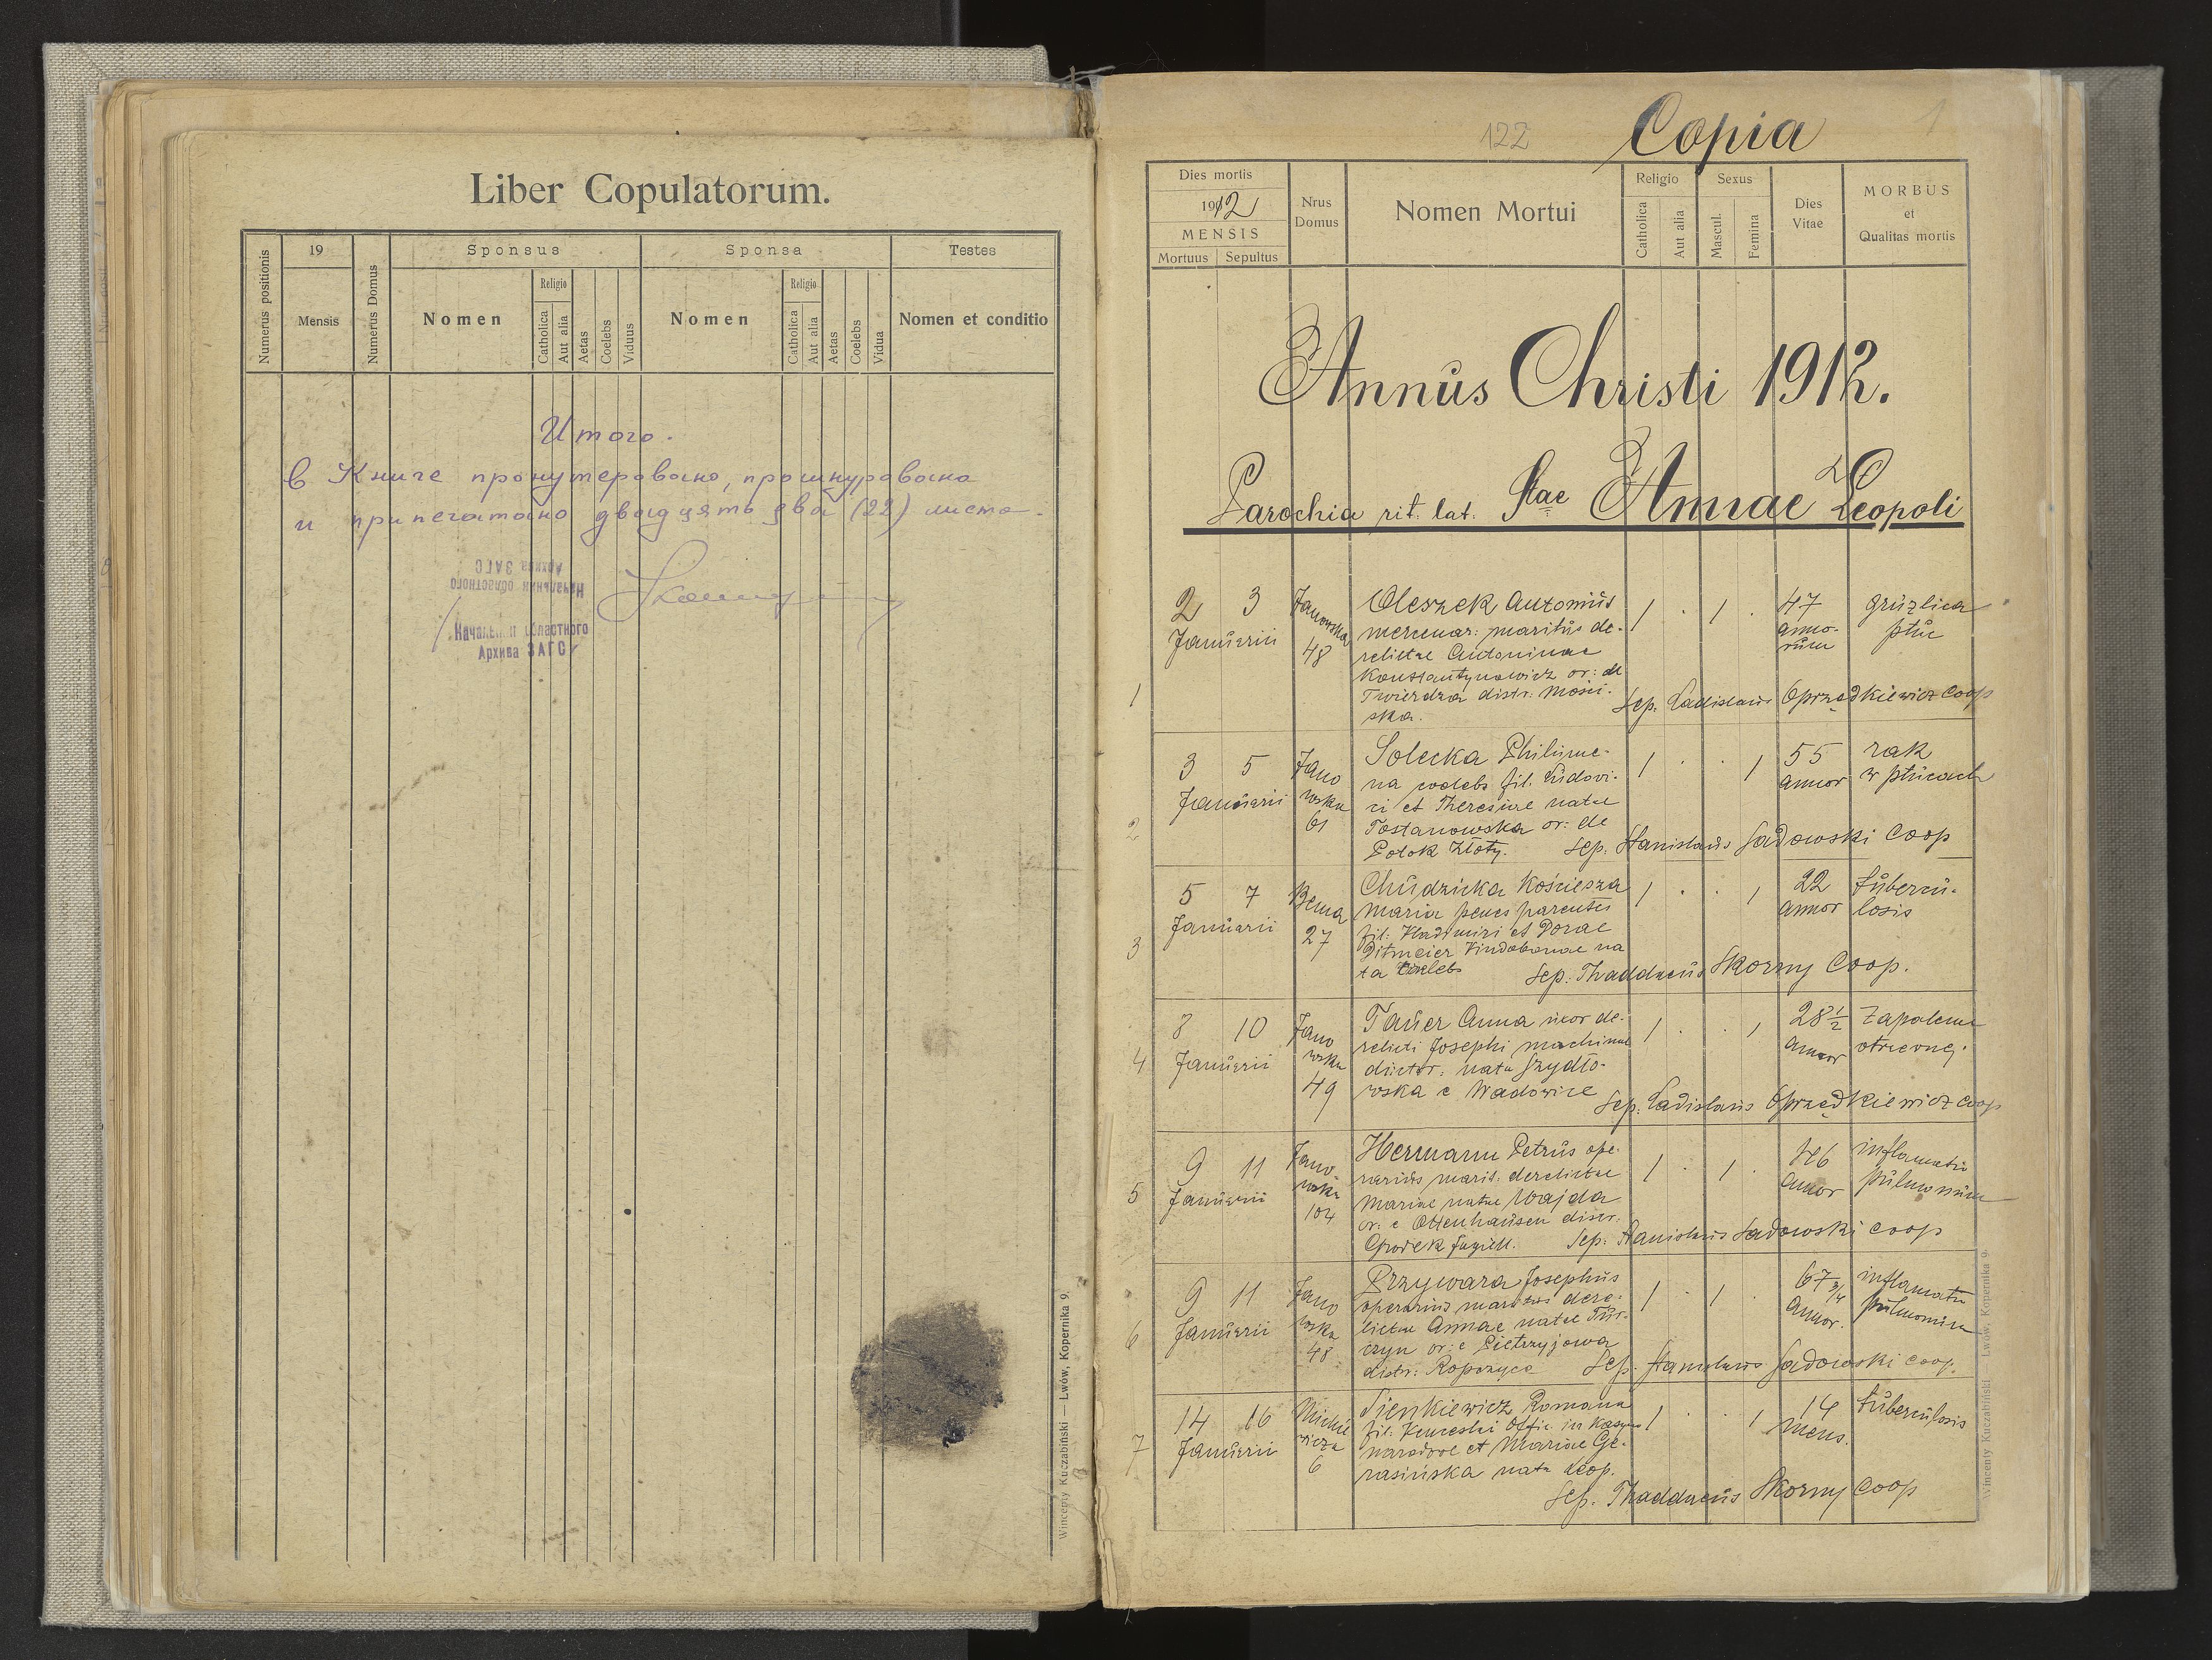 Liber Copulatorum.
Numerus positionis
19
Mensis
Numerus Domus
Sponsus
Nomen
Religio
Catholica
Aut alia
Aetas
Coelebs
Viduus
Sponsa
Nomen
Religio
Catholica
Aut alia
Aetas
Coelebs
Vidua
Testes
Nomen et conditio
Итого.
в Книге пронумеровано, прошнуровано
и припечатано двадцять два (22) листа.
Начальник областного
Архива ЗАГС
Начальник областного
Архива ЗАГС
Wincenty Kuczabiński — Lwów, Kopernika 9.
122
Copia
1
Dies mortis
1912
MENSIS
Mortuus
Sepultus
Nrus
Domus
Nomen Mortui
Religio
Catholica
Aut alia
Sexus
Mascul.
Femina
Dies
Vitae
MORBUS
et
Qualitas mortis
Annus Christi 1912.
Parochia rit. lat. Stae Annae Leopoli
1
2 3
Januarii
Janowska
48
Oleszek Antonius
mercenar: maritus de-
relictae Antoninae
Konstantynowicz or: de
Twierdza distr: Mości-
ska.
1 . 1 .
47
anno-
rum
gruźlica
płuc
Sep. Ladislaus Oprządkiewicz Coop
2
3 5
Januarii
Jano
wska
61
Solecka Philume-
na coelebs fil. Ludovi-
ci et Theresiae natae
Tostanowska or: de
Potok Złoty.
1 . . 1
55
annor
rak
w płucach
Sep. Stanislaus Sadowski Coop
3
5 7
Januarii
Bema
27
Chudzicka Kościesza
Maria penes parentes
fil: Vladimiri et Dorae
Ditmeier Vindobonae na
ta coelebs
1 . . 1
22
annor
tubercu-
losis
Sep. Thaddaeus Skorny Coop.
4
8 10
Januarii
Jano
wska
49
Tauer Anna uxor de-
relicti Josephi machinae
ductor: nata Szydło-
wska e Wadowice
1 . . 1
28 1/2
annor
zapalenie
otrzewnej.
Sep. Ladislaus Oprządkiewicz Coop
5
9 11
Januarii
Jano
wska
104
Hermann Petrus ope-
rarius marit. derelictae
Mariae natae Wajda
or: e Ottenhausen distr:
Gródek Jagiell.
1 . 1 .
46
annor
inflamatio
pulmonum
Sep. Stanislaus Sadowski Coop
6
9 11
Januarii
Jano
wska
48
Przywara Josephus
operarius maritus dere-
lictae Annae natae Tur-
czyn or: e Pietrzyjowa
distr: Ropczyce
1 . 1 .
67 3/4
annor.
inflamatio
pulmonum
Sep. Stanislaus Sadowski Coop.
7
14 16
Januarii
Mickie
wicza
6
Sienkiewicz Romana
fil: Venceslai offic in Kasyno
narodowe et Mariae Ge-
rasińska nata Leop.
1 . . 1
14
mens.
tuberculosis
Sep. Thaddaeus Skorny Coop
Wincenty Kuczabiński — Lwów, Kopernika 9.